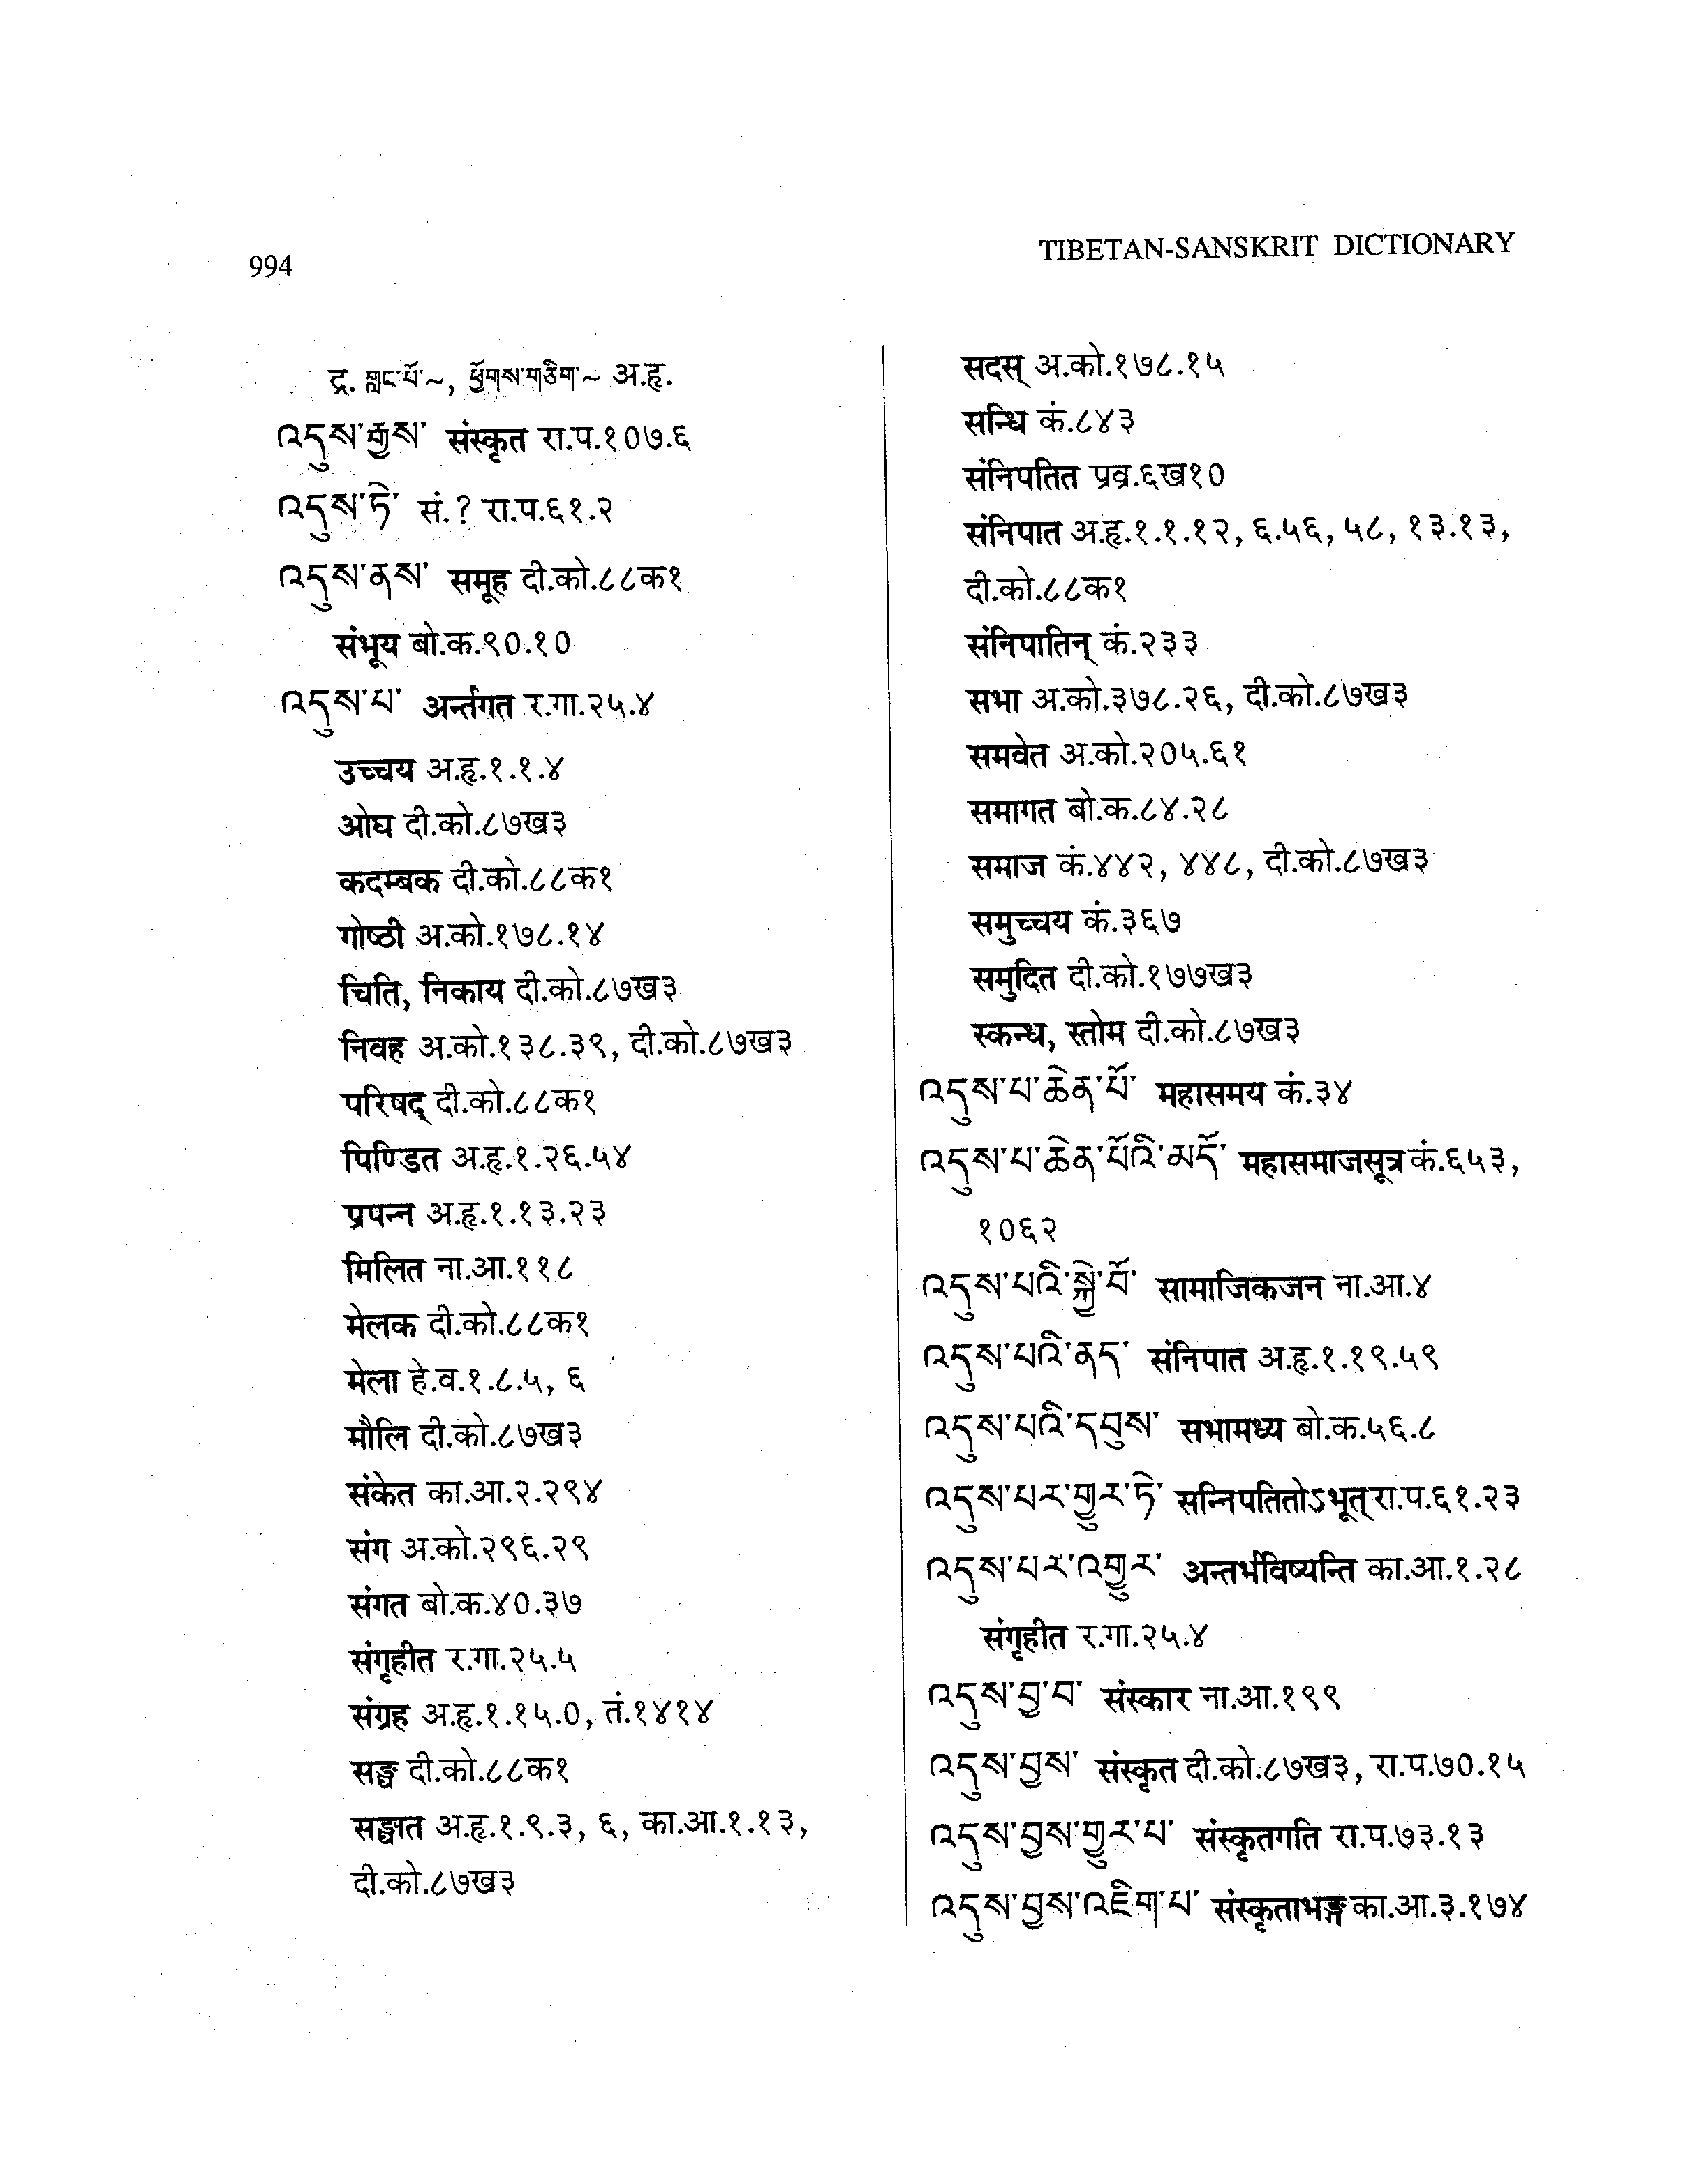 994
TIBETAN-SANSKRIT DICTIONARY
द्र. གླང་པོ་~, ཕྱོགས་གཅིག་~ अ.हृ.
འདུས་རྒྱས་ संस्कृत रा.प.१०७.६
འདུས་ཏེ་ सं.? रा.प.६१.२
འདུས་ནས་ समूह दी.को.८८क१
संभूय बो.क.९०.१०
འདུས་པ་ अर्न्तगत र.गा.२५.४
उच्चय अ.हृ.१.१.४
ओघ दी.को.८७ख३
कदम्बक दी.को.८८क१
गोष्ठी अ.को.१७८.१४
चिति, निकाय दी.को.८७ख३
निवह अ.को.१३८.३९, दी.को.८७ख३
परिषद् दी.को.८८क१
पिण्डित अ.हृ.१.२६.५४
प्रपन्न अ.हृ.१.१३.२३
मिलित ना.आ.११८
मेलक दी.को.८८क१
मेला हे.व.१.८.५, ६
मौलि दी.को.८७ख३
संकेत का.आ.२.२९४
संग अ.को.२९६.२९
संगत बो.क.४०.३७
संगृहीत र.गा.२५.५
संग्रह अ.हृ.१.१५.0, तं.१४१४
सङ्घ दी.को.८८क१
सङ्घात अ.हृ.१.९.३, ६, का.आ.१.१३,
दी.को.८७ख३
सदस् अ.को.१७८.१५
सन्धि कं.८४३
संनिपतित प्रव्र.६ख१०
संनिपात अ.हृ.१.१.१२, ६.५६, ५८, १३.१३,
दी.को.८८क१
संनिपातिन् कं.२३३
सभा अ.को.३७८.२६, दी.को.८७ख३
समवेत अ.को.२०५.६१
समागत बो.क.८४.२८
समाज कं.४४२, ४४८, दी.को.८७ख३
समुच्चय कं.३६७
समुदित दी.को.१७७ख३
स्कन्ध, स्तोम दी.को.८७ख३
འདུས་པ་ཆེན་པོ་ महासमय कं.३४
འདུས་པ་ཆེན་པོའི་མདོ་ महासमाजसूत्र कं.६५३,
१०६२
འདུས་པའི་སྐྱེ་བོ་ सामाजिकजन ना.आ.४
འདུས་པའི་ནད་ संनिपात अ.हृ.१.१९.५९
འདུས་པའི་དབུས་ सभामध्य बो.क.५६.८
འདུས་པར་གྱུར་ཏེ་ सन्निपतितोऽभूत् रा.प.६१.२३
འདུས་པར་འགྱུར་ अन्तर्भविष्यन्ति का.आ.१.२८
संगृहीत र.गा.२५.४
འདུས་བྱ་བ་ संस्कार ना.आ.१९९
འདུས་བྱས་ संस्कृत दी.को.८७ख३, रा.प.७०.१५
འདུས་བྱས་གྱུར་པ་ संस्कृतगति रा.प.७३.१३
འདུས་བྱས་འཇིག་པ་ संस्कृताभङ्ग का.आ.३.१७४